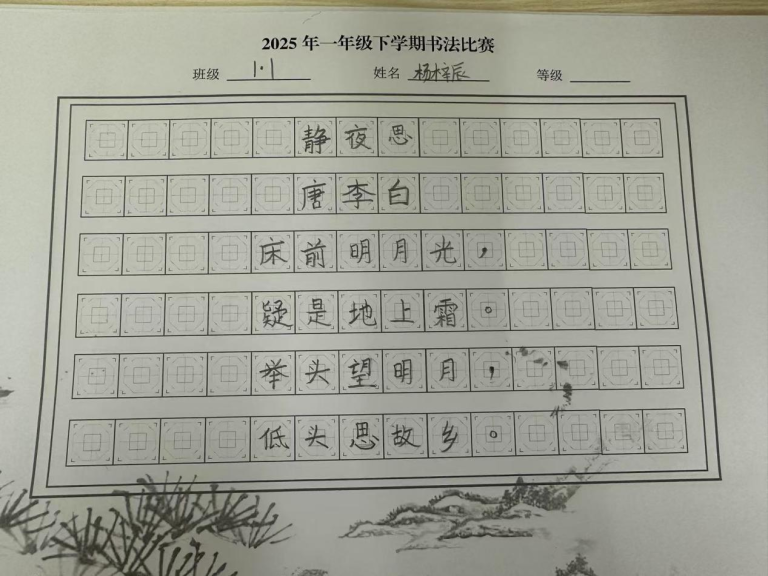 2025年一年级下学期书法比赛
班级 1.1 姓名 杨梓辰 等级
静夜思
唐李白
床前明月光，
疑是地上霜。
举头望明月，
低头思故乡。